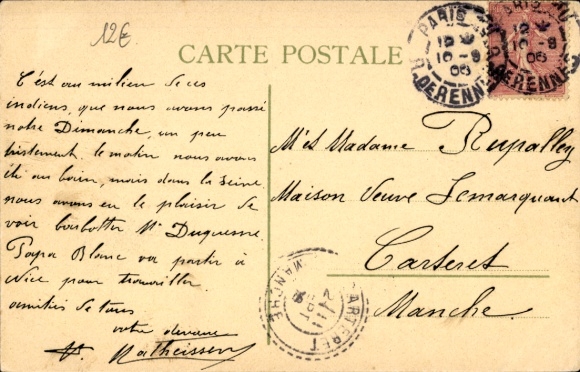 12€
CARTE POSTALE
PARIS
R. DERENNES
C'est au milieu de ces
indiens, que nous avons passé
notre Dimanche, un peu
tristement. le matin nous avons
été au bain, mais dans la Seine.
nous avons eu le plaisir de
voir barbotter Mr Duquesne
Papa Blanc va partir à
Nice pour travailler.
amitiés de tous
votre dévoué
Matheissen
Mr et Madame Rupalley
Maison Veuve Lemarquant
Carteret
Manche
CARTERET
MANCHE